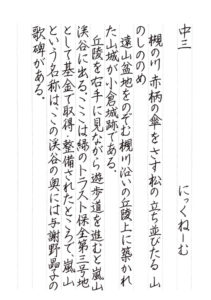 中三　にっくねーむ
槻の川 赤柄の傘をさす松の立ち並びたる山
のののめ
遠山盆地をのぞむ槻川沿いの丘陵上に築かれ
た山城が小倉城跡である。
丘陵を右手に見ながら遊歩道を進むと嵐山
渓谷に出る。ここは緑のトラスト保全第三号地
として基金で取得、整備されたところで、嵐山
という名称は、この渓谷の奥には与謝野晶子の
歌碑がある。